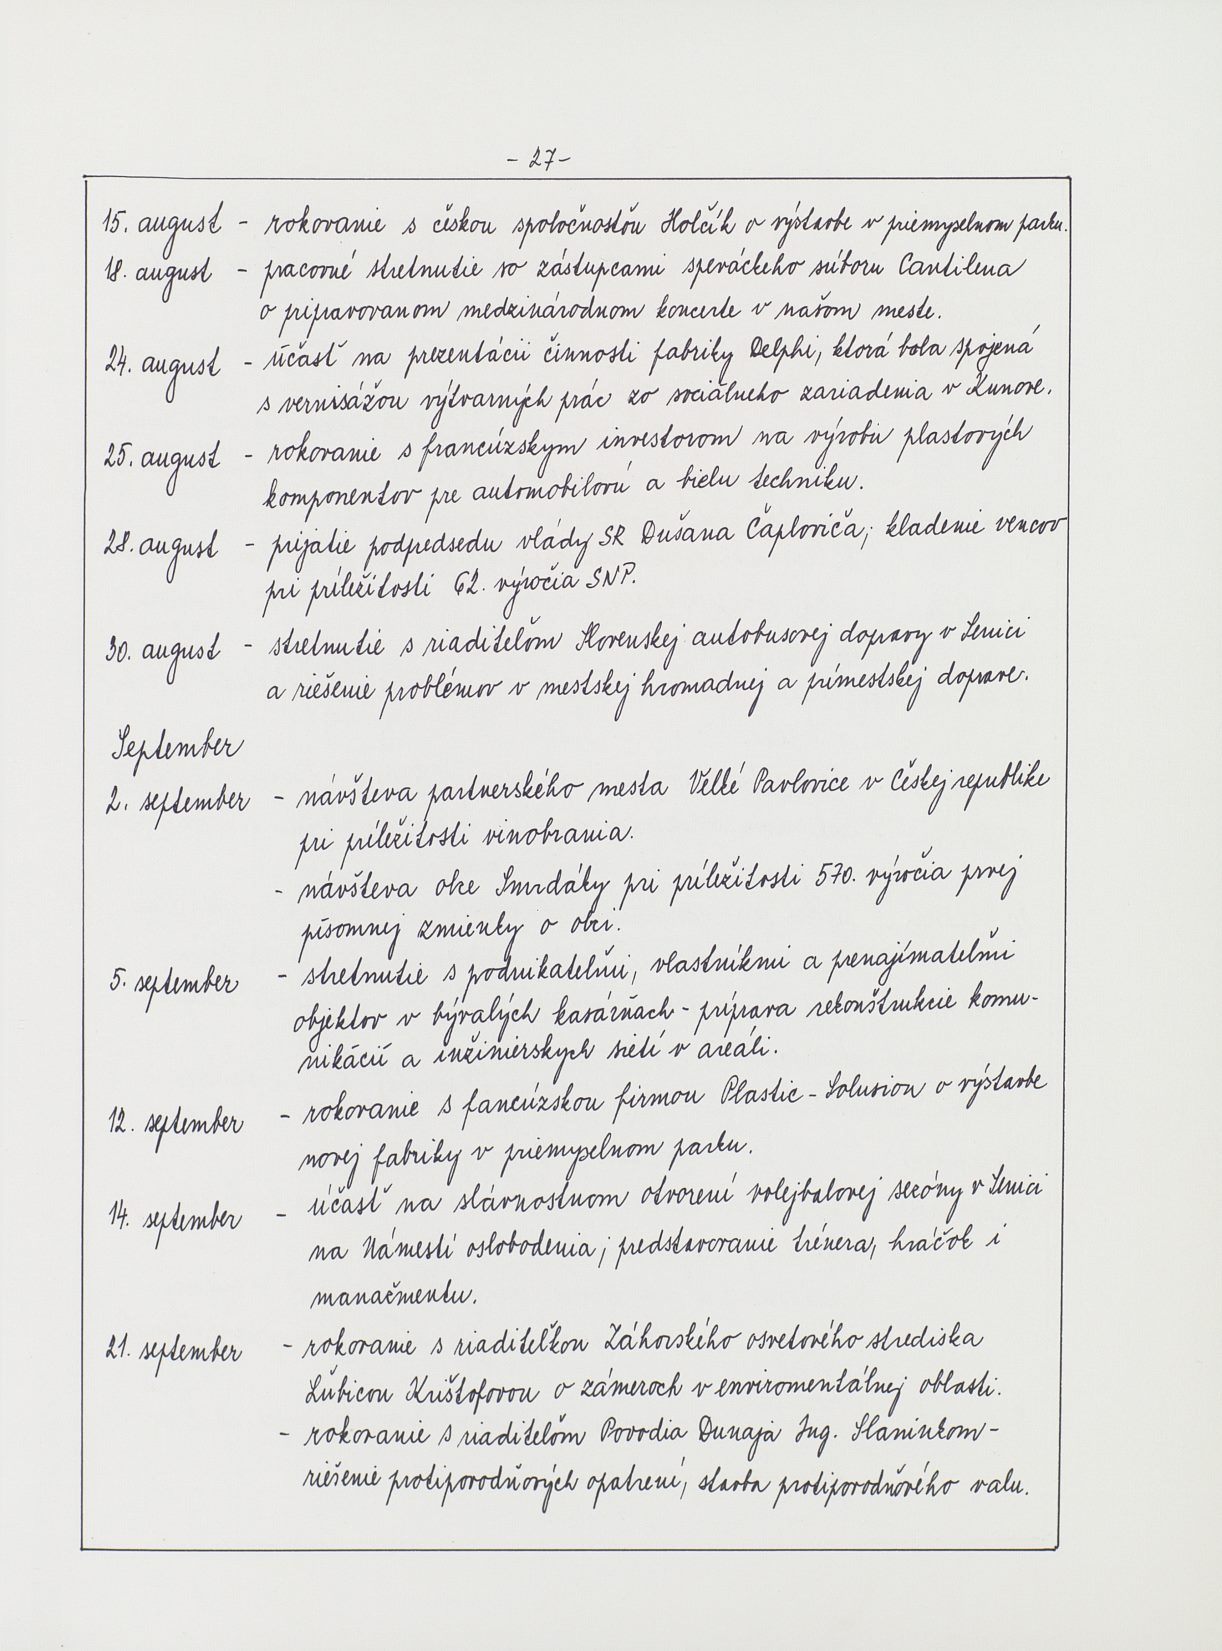 - 27 -
15. august - rokovanie s českou spoločnosťou Holčík o výstavbe v priemyselnom parku.
18. august - pracovné stretnutie so zástupcami speváckeho súboru Cantilena
o pripravovanom medzinárodnom koncerte v našom meste.
24. august - účasť na prezentácii činnosti fabriky Delphi, ktorá bola spojená
s vernisážou výtvarných prác zo sociálneho zariadenia v Kunove.
25. august - rokovanie s francúzskym investorom na výrobu plastových
komponentov pre automobilovú a bielu techniku.
28. august - prijatie podpredsedu vlády SR Dušana Čaploviča; kladenie vencov
pri príležitosti 62. výročia SNP.
30. august - stretnutie s riaditeľom Slovenskej autobusovej dopravy v Senici
a riešenie problémov v mestskej hromadnej a prímestskej doprave.
September
2. september - návšteva partnerského mesta Velké Pavlovice v Českej republike
pri príležitosti vinobrania.
- návšteva obce Smrdáky pri príležitosti 570. výročia prvej
písomnej zmienky o obci.
5. september - stretnutie s podnikateľmi, vlastníkmi a prenajímateľmi
objektov v bývalých kasárňach - príprava rekonštrukcie komu-
nikácií a inžinierskych sietí v areáli.
12. september - rokovanie s fancúzskou firmou Plastic - Solusion o výstavbe
novej fabriky v priemyselnom parku.
14. september - účasť na slávnostnom otvorení volejbalovej sezóny v Senici
na Námestí oslobodenia; predstavovanie trénera, hráčok i
manačmentu.
21. september - rokovanie s riaditeľkou Záhorského osvetového strediska
Ľubicou Krištofovou o zámeroch v enviromentálnej oblasti.
- rokovanie s riaditeľom Povodia Dunaja Ing. Slaninkom -
riešenie protipovodňových opatrení, stavba protipovodňového valu.